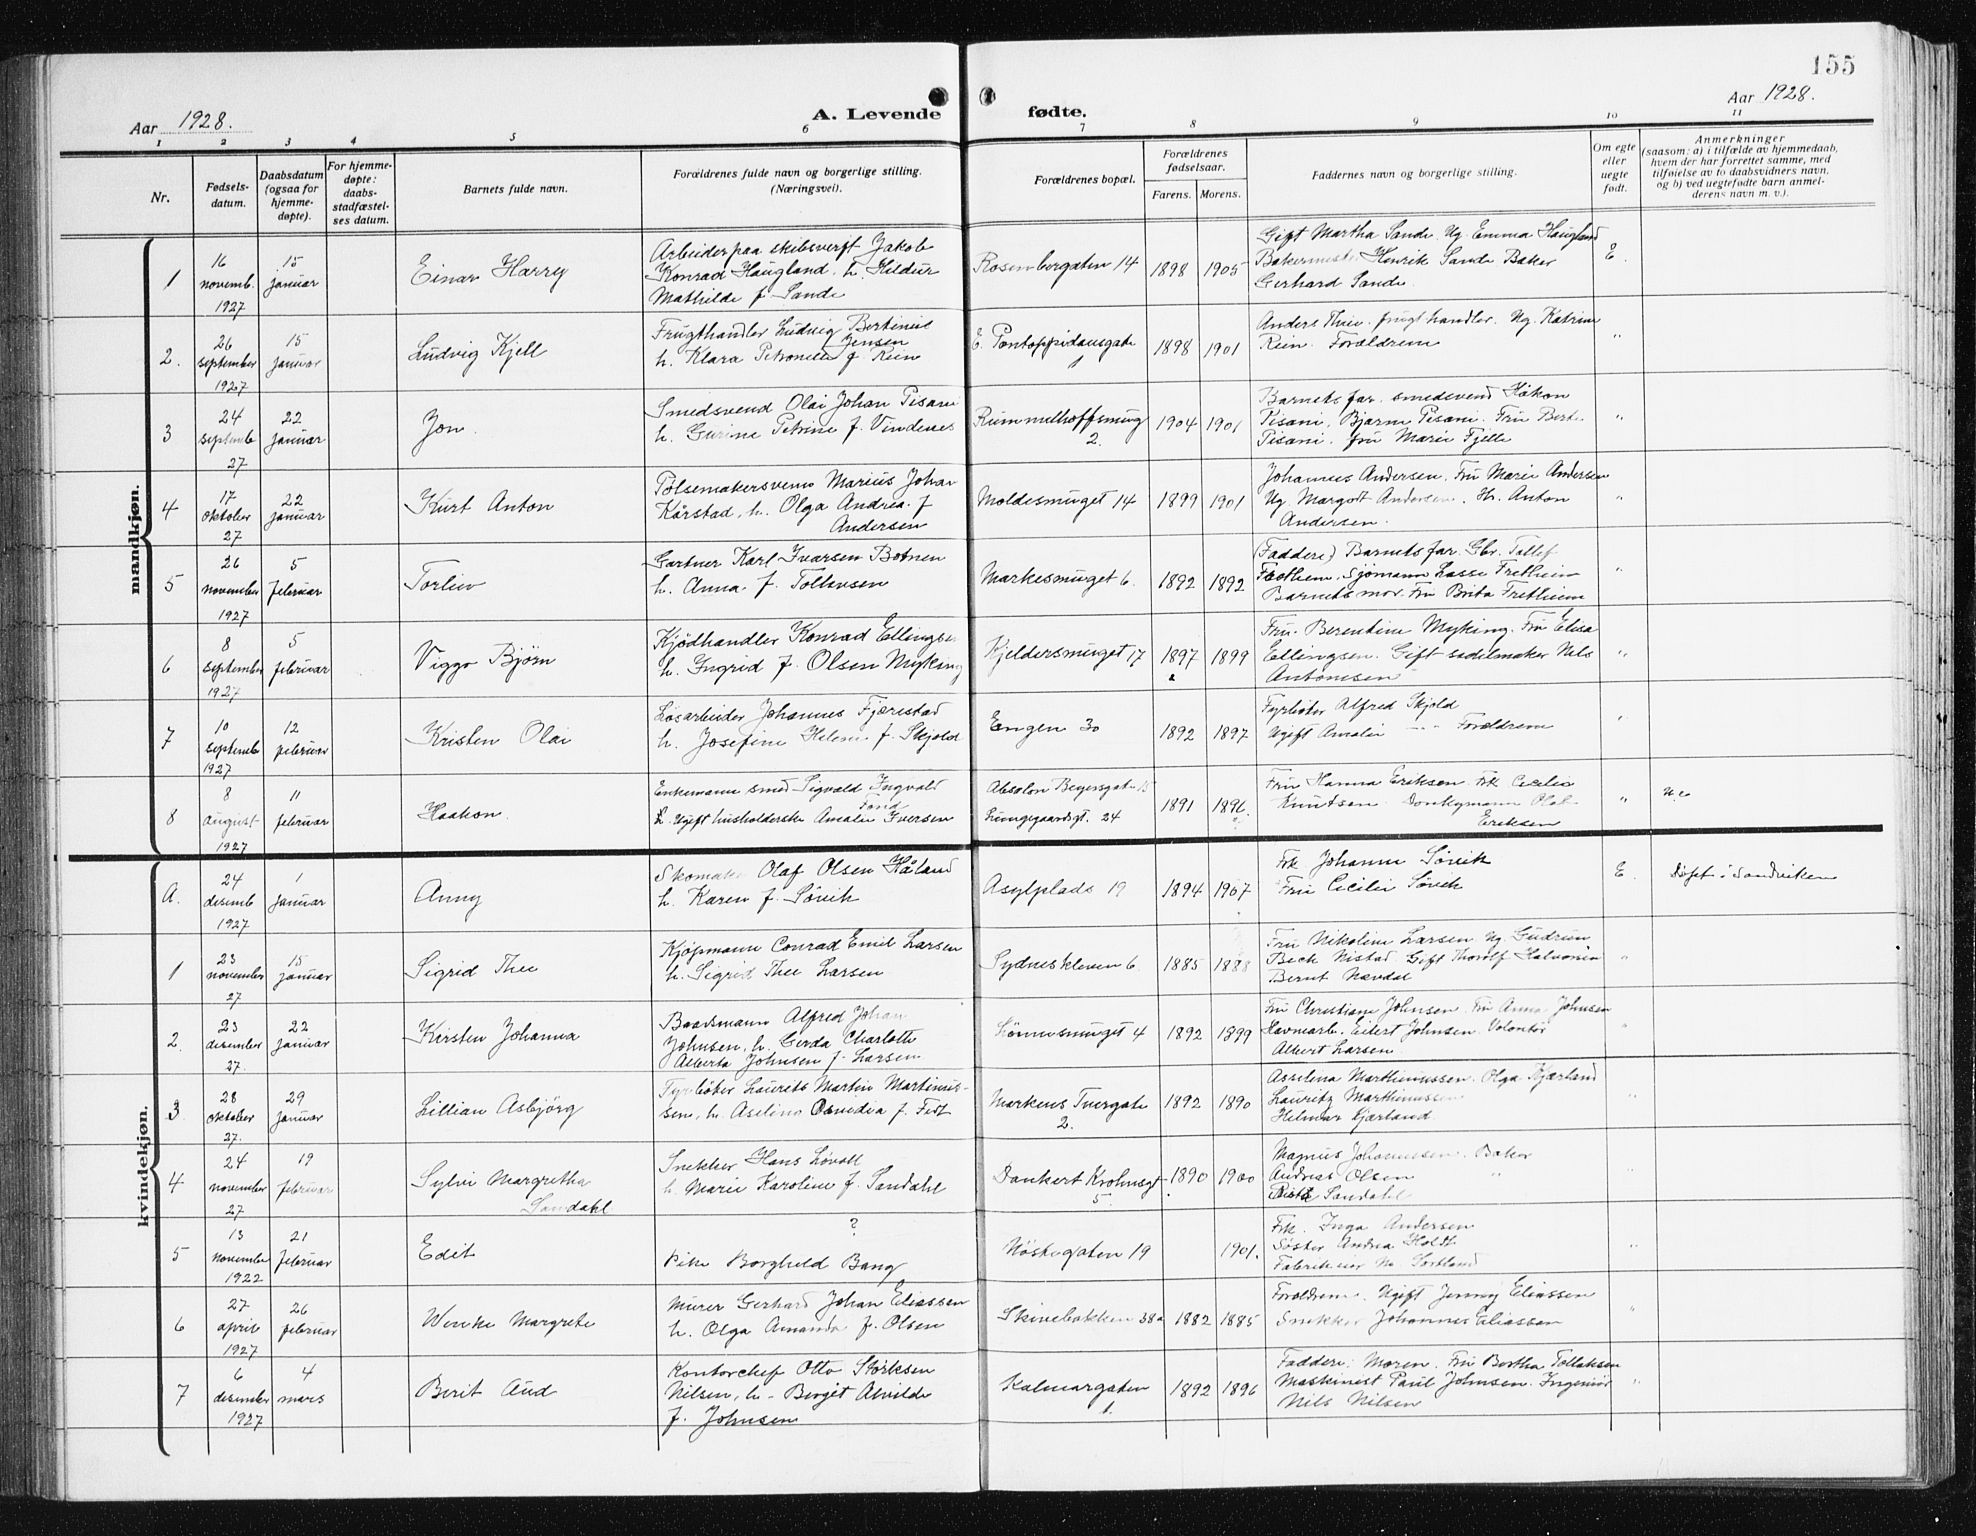 155
Aar 1928.
A. Levende fødte.
Aar 1928.
1 2 3 4 5 6 7 8 9 10 11
Nr.
Fødsels-
datum.
Daabsdatum
(ogsaa for
hjemme-
døpte).
For hjemme-
døpte:
daabs-
stadfæstel-
ses datum.
Barnets fulde navn.
Forældrenes fulde navn og borgerlige stilling.
(Næringsvei).
Forældrenes bopæl.
Forældrenes
fødselsaar.
Farens. Morens.
Faddernes navn og borgerlige stilling.
Om egte
eller
uegte
født.
Anmerkninger
(saasom: a) i tilfælde av hjemmedaab,
hvem der har forrettet samme, med
tilføielse av to daabsvidners navn,
og b) ved uegtefødte barn anmel-
derens navn m. v.).
mandkjøn.
1
16
novemb.
1927
15
januar
Einar Harry
Arbeider paa skibsverft Jakob
Konrad Haugland. h. Hildur
Mathilde f. Sande
Rosenbergaten 14
1898 1905
Gift Martha Sande. Ug. Emma Haugland
Bakermester Henrik Sande Baker
Gerhard Sande.
E.
2.
26
september
1927
15
januar
Ludvig Kjell
Frugthandler Ludvig Bertinius
Jensen
h. Klara Petronelle f. Rein
E. Pontoppidansgate
1
1898 1901
Anders Thue. frugthandler. Ug. Katrine
Rein. Forældrene
"
3
24
septemb
27
22
januar
Jon.
Smedsvend Olai Johan Pisani
h. Gurine Petrine f. Vindenes
Rummelhoffsmug
2.
1904 1901
Barnets far. smedsvend Håkon
Pisani. Bjarne Pisani. Fru Berte
Pisani. fru Marie Fjelle
"
4
17
oktober
27
22
januar
Kurt Anton
Pølsemakersvenn Marius Johan
Kårstad, h. Olga Andrea f.
Andersen
Moldesmuget 14
1899 1901
Johannes Andersen. Fru Marie Andersen
Ug. Margott Andersen. Hr. Anton
Andersen.
"
5
26
november
1927
5
februar
Torleiv
Gartner Karl Ivarsen Botnen
h. Anna f. Tollevsen
Markesmuget 6.
1892 1892
(Faddere) Barnets far. Gbr. Tollef
Fretheim. Sjømann Lasse Fretheim
Barnets mor. Fru Brita Fretheim
"
6
8
september
1927
5
februar
Viggo Bjørn
Kjødhandler Konrad Ellingse
h. Ingrid f. Olsen Myking
Kjeldersmuget 17
1897 1899
Fru. Berentine Myking. Fru Elisa
Ellingsen. Gift sadelmaker Nils
Antonisen
"
7
10
septemb
1927
12
februar
Kristen Olai
Løsarbeider Johannes Fjærestad
h. Josefine Helene f. Skjold
Engen 30
1892 1897
Fyrbøter Alfred Skjold
Ugift Amalie — " — Forældrene
"
8
8
august
1927
11
februar
Haakon.
Enkemann smed Sigvald Ingvald
Tond
L. Ugift husholderske Amalie Iversen
Absalon Beyersgate 15
Lungegaardsgt. 24
1891 1896
Fru Hanna Eriksen. Frk Cecilie
Knutsen. Donkeymann Olaf
Eriksen
"
U.e
kvindekjøn.
A.
24
desemb
1927
1
januar
Anny
Skomaker Olaf Olsen Håland
h. Karen f. Sørvik
Asylplads 19
1894 1907
Frk Johanne Sørvik
Fru Cecilie Sørvik
E.
Døpt i Sandviken
1
23
november
27
15
januar
Sigrid Thee
Kjøpmann Conrad Emil Larsen
h. Sigrid Thee Larsen
Sydneskleven 6.
1885 1888
Fru Nikoline Larsen Ug. Gudrun
Beck Nistad Gift Thorolf Halvorsen
Bernt Nævdal
"
2.
23
desember
27.
22
januar
Kirsten Johanna
Baadsmann Alfred Johan
Johnsen, h. Gerda Charlotte
Alberta Johnsen f. Larsen
Lønnesmuget 4
1892 1899
Fru Christiane Johnsen. Fru Anna Johnsen
Havnearb. Eilert Johnsen. Volontør
Albert Larsen
"
3
28
oktober
27.
29
januar
Lillian Asbjörg
Fyrbøter Laurits Martin Martinus-
sen, h. Aselina Ovedia f. Fedt
Markens Tvergate
2.
1892 1890
Asselina Marthinussen. Olga Kjærland
Lauritz Marthinussen
Hilmar Kjærland
"
4
24
november
27
19
februar
Sylvi Margretha
Sandahl
Snekker Hans Løvoll
h. Marie Karoline f. Sandahl
Dankert Krohnsgt
5.
1890 1900
Magnus Johannessen. Baker
Andreas Olsen "
Sandahl
"
5
13
november
1922
21
februar
Edit
?
Pike Borghild Bang
Nöstegaten 19
1901.
Frk. Inga Andersen
Søster Andrea Holdt
Fabrikeier N. Sortland
"
6
27
april
1927
26
februar
Wencke Margrete
Murer Gerhard Johan Eliassen
h. Olga Amanda f. Olsen
Skivebakken 38a
1882 1885
Forældrene. Ugift Jenny Eliassen
Snekker Johannes Eliassen
"
7
6
desember
1927
4
mars
Berit Aud
Kontorchef Otto Størksen
Nilsen, h. Berget Alvilde
f. Johnsen
Kalmargaten
1.
1892 1896
Faddere: Moren. Fru Bertha Tollaksen
Maskinist Paul Johnsen. Ingeniør
Nils Nilsen
"